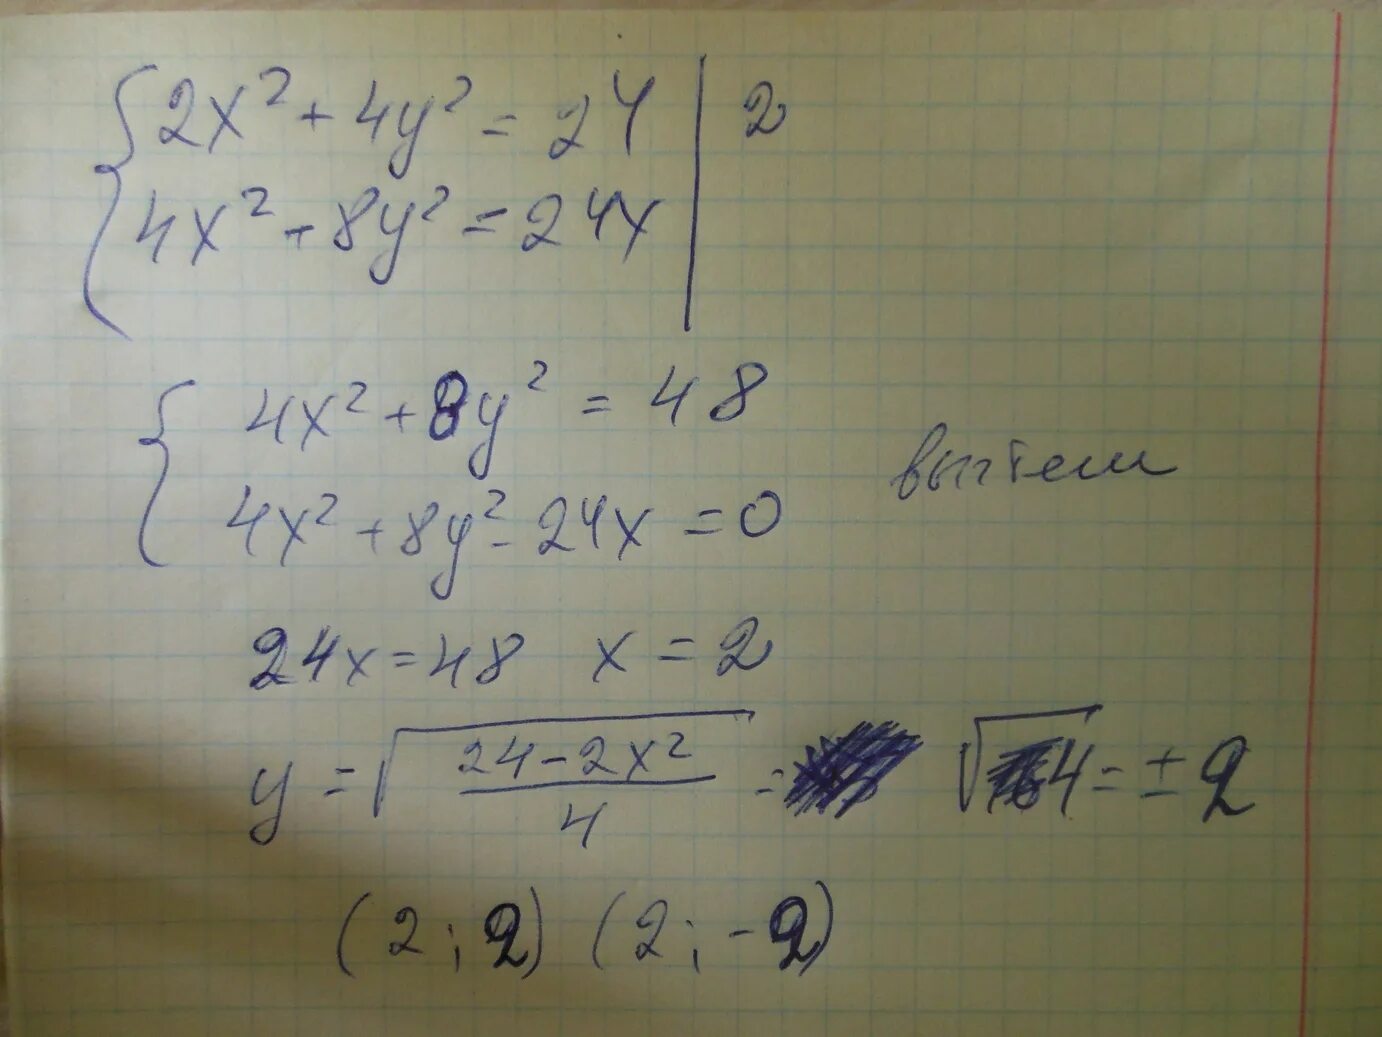 2x² + 4y² = 24 | 2
4x² + 8y² = 24x
4x² + 8y² = 48
4x² + 8y² - 24x = 0 вычтем
24x = 48 x = 2
y = √((24 - 2x²)/4) = √4 = ± 2
(2 ; 2) (2 ; -2)